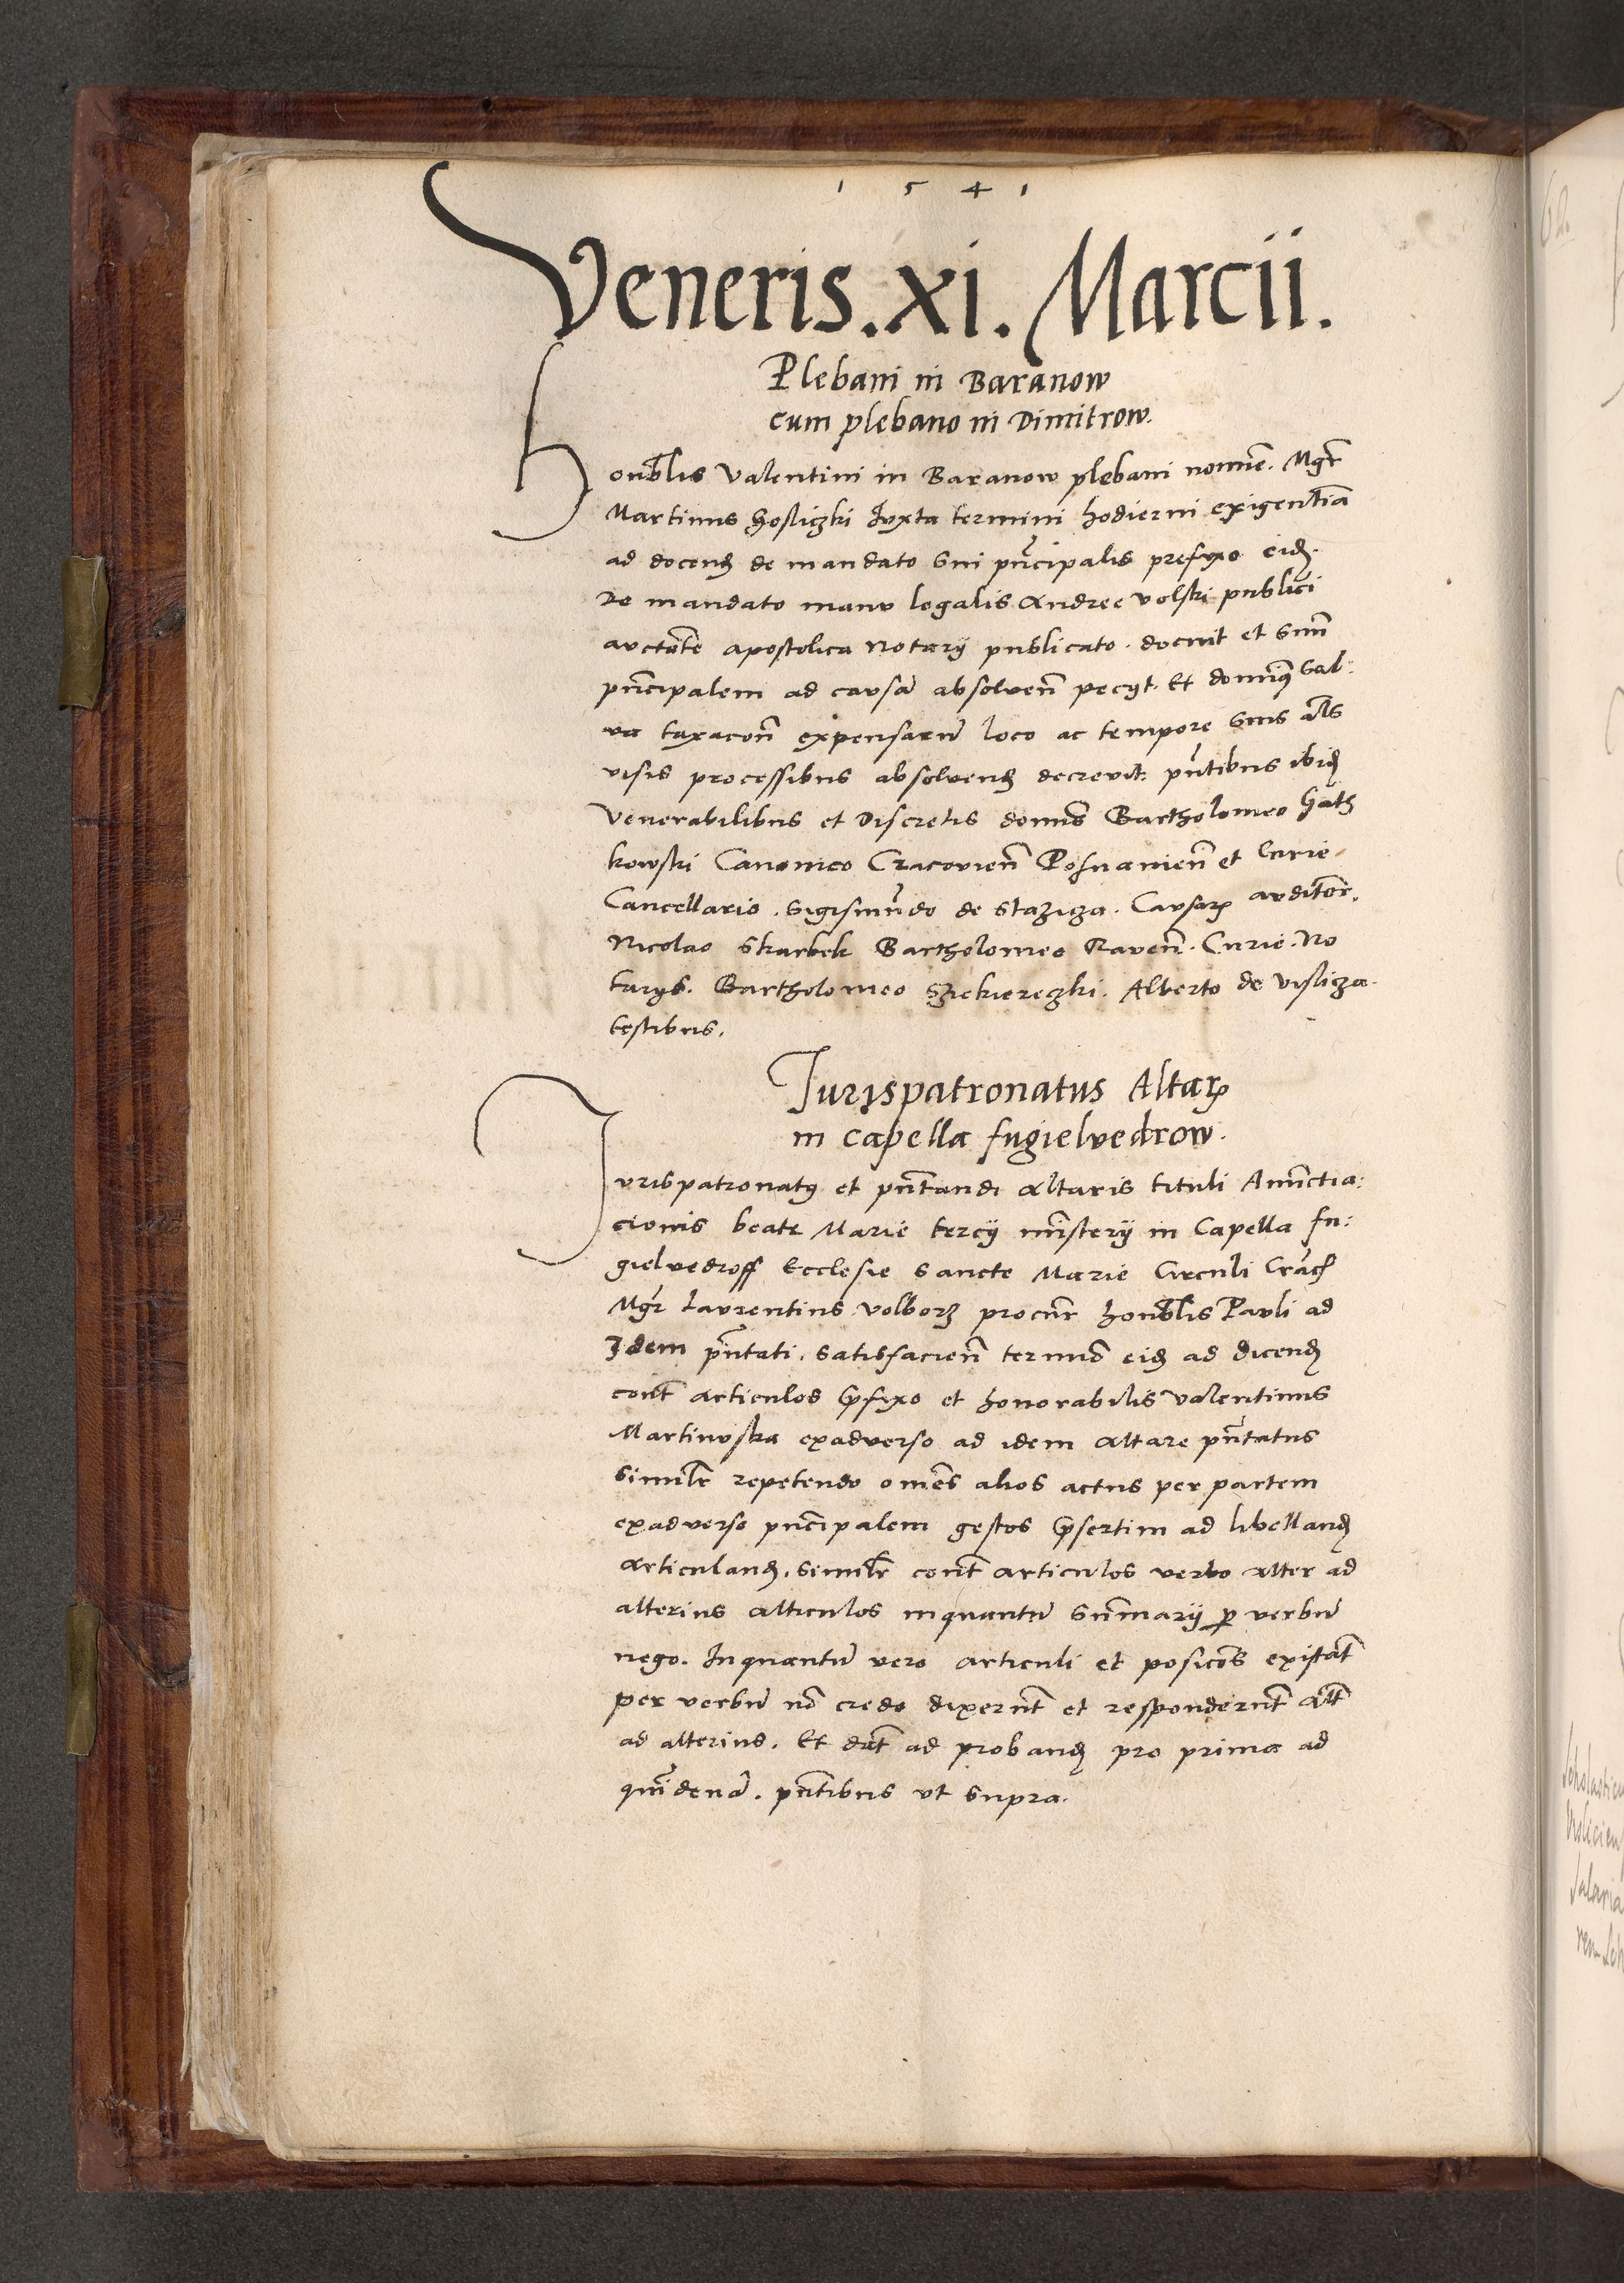 1 5 4 1
Veneris . xi . Marcii .
Plebani in Baranow
cum plebano in Dimitrow.
Honblis Valentini in Baranow plebani nomine. Mgr
Martinus Iuxta termini hodierni exigentia
ad docend de mandato sui principalis prefixo eid.
De mandato manu legalis Andree Volski publici
auctate apostolica Notary publicato. docuit et suu
principalem ad causa absoluen pecyt. Et dominus Sal:
va taxacon expensaru loco ac tempore suis
visis processibus absoluend decrevit. pntibus ibid
Venerabilibus et Discretis domis Bartholomeo Gath
kowski Canonico Cracovien Posnanien et Curie
Cancellario. Sigismudo de Stazicza. Causar auditor.
Nicolao Skarbek Bartholomeo Raven. Curie. No
tarys. Bartholomeo Szekiereczki. Alberto de Vislicza.
testibus.
Jurispatronatus Altar
in capella fugielvedrow.
Jurispatronatus et pntandi altaris tituli Anunctia:
cionis beate Marie tercy ministery in Capella fu:
gielvedroff Ecclesie Sancte Marie Circuli Crach
Mgr Laurentius Volborz procur honblis Pauli ad
Idem pntati. satisfacien termio eid ad dicend
cont articulos prefixo et honorabilis Valentinus
Martinuska exadverso ad idem altare pntatus
similr repetendo omes alios actus per partem
exadverso principalem gestos presertim ad libelland
articuland. similr cont articulos verbo alter ad
alterius alticulos inquantu summary per verbu
nego. Inquantu vero articuli et posicos existat
per verbu no credo dixerut et responderut alt
ad alterius. Et dat ad proband pro prima ad
quindena. pntibus ut supra.